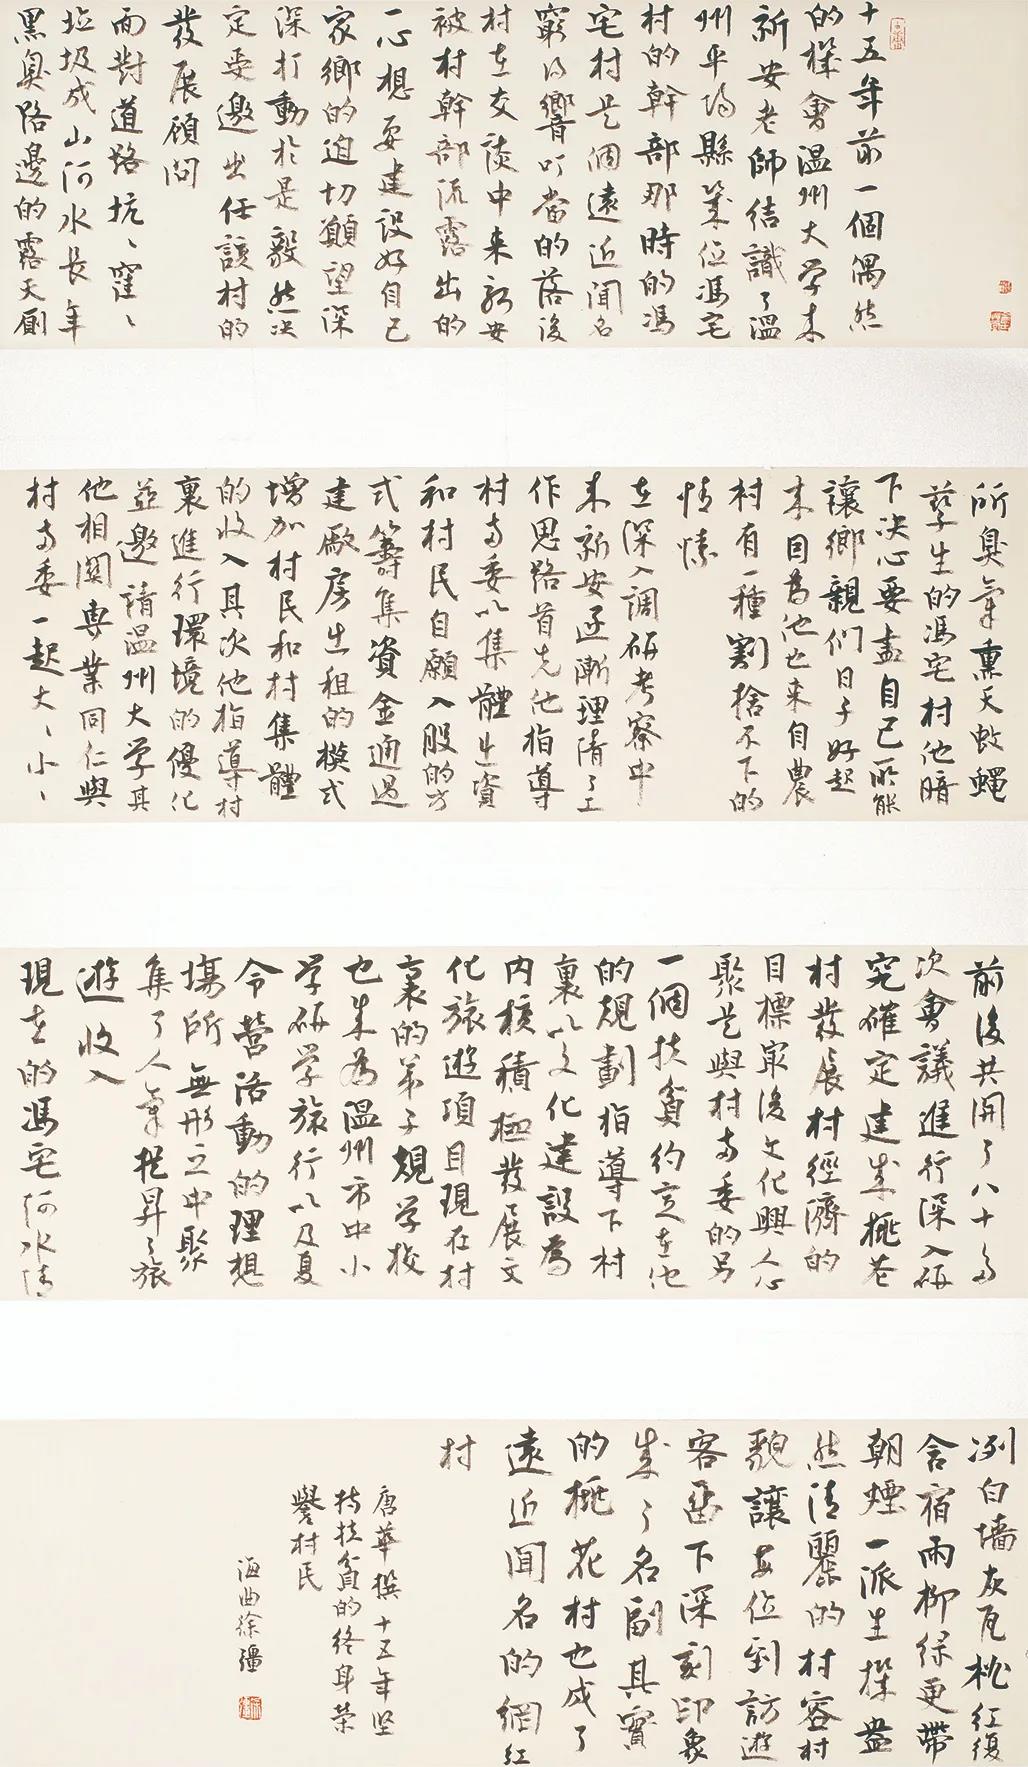 十五年前一個偶然
的機會溫州大学朱
新安老師結識了溫
州平陽縣萬全馮宅
村的幹部那時的馮
宅村是個遠近聞名
窮得響叮當的落後
村在交談中朱新安
被村幹部流露出的
一心想要建設好自己
家鄉的迫切願望深
深打動於是毅然决
定要邀出任該村的
發展顧問
面對道路坑坑窪窪
垃圾成山河水長年
黑臭路邊的露天厠
所臭氣熏天蚊蠅
孳生的馮宅村他暗
下决心要盡自己所能
讓鄉親們日子好起
来因爲他也来自農
村有一種割捨不下的
情愫
在深入調研考察中
朱新安逐漸理清了工
作思路首先他指導
村兩委以集體出資
和村民自願入股的方
式籌集資金通過
建厰房出租的模式
增加村民和村集體
的收入其次他指導村
裏進行環境的優化
並邀請温州大学其
他相関專業同仁與
村兩委一起大大小小
前後共開了八十多
次會議進行深入研
究確定建成桃花
村發展村經濟的
目標最後文化興人心
聚是與村兩委的另
一個扶貧約定在他
的規劃指導下村
裏以文化建設爲
内核積極發展文
化旅遊項目現在村
裏的弟子規学校
也成為温州市中小
学研学旅行以及夏
令營活動的理想
場所無形之中聚
集了人氣提昇了旅
遊收入
現在的馮宅河水清
洌白墙灰瓦桃红復
含宿雨柳緑更帶
朝煙一派生機盎
然清麗的村容村
貌讓每位到訪遊
客留下深刻印象
成了名副其實
的桃花村也成了
遠近聞名的網红
村
唐華撰十五年坚
持扶貧的终身荣
譽村民
海曲徐彊